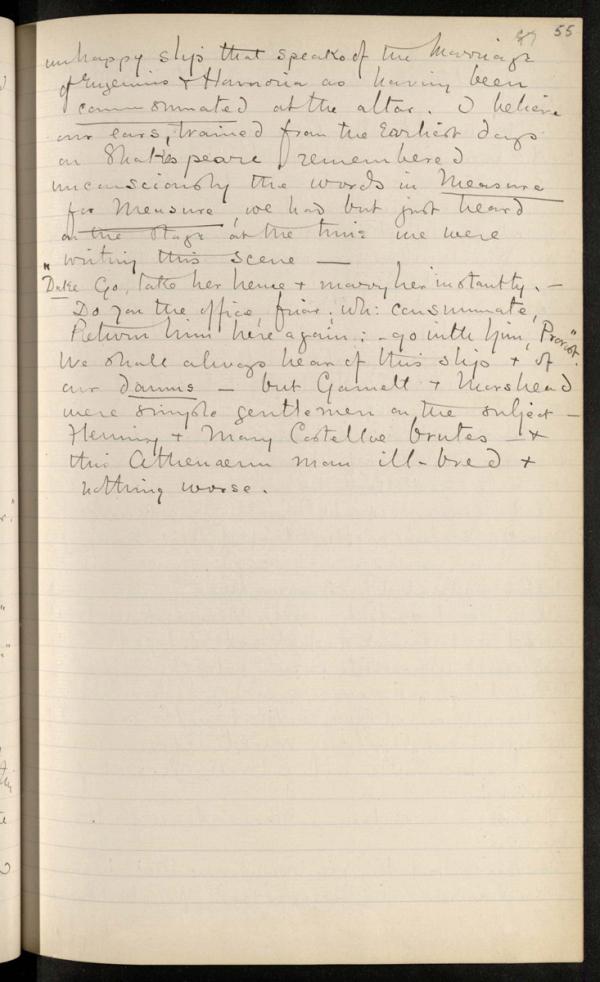 87 55
unhappy slip that speaks of the Marriage
of Eugenius & Honoria as having been
consummated at the altar. I believe
our ears, trained from the Earliest days
on Shakespeare, remembered
unconsciously the words in Measure
for Measure, we had but just heard
on the stage at the time we were
writing this scene —
"Duke Go, take her hence & marry her instantly. —
Do you the office, friar; wh: consummate,
Return him here again: – go with him, Provost."
We shall always hear of this slip & of
our damns — but Garnett & Morshead
were simple gentlemen on the subject —
Fleming & Mary Costelloe brutes — &
this Athenaeum man ill-bred &
nothing worse.